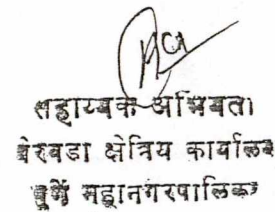 सहाय्यक अभियंता
येरवडा क्षेत्रिय कार्यालय
पुणें महानगरपालिका